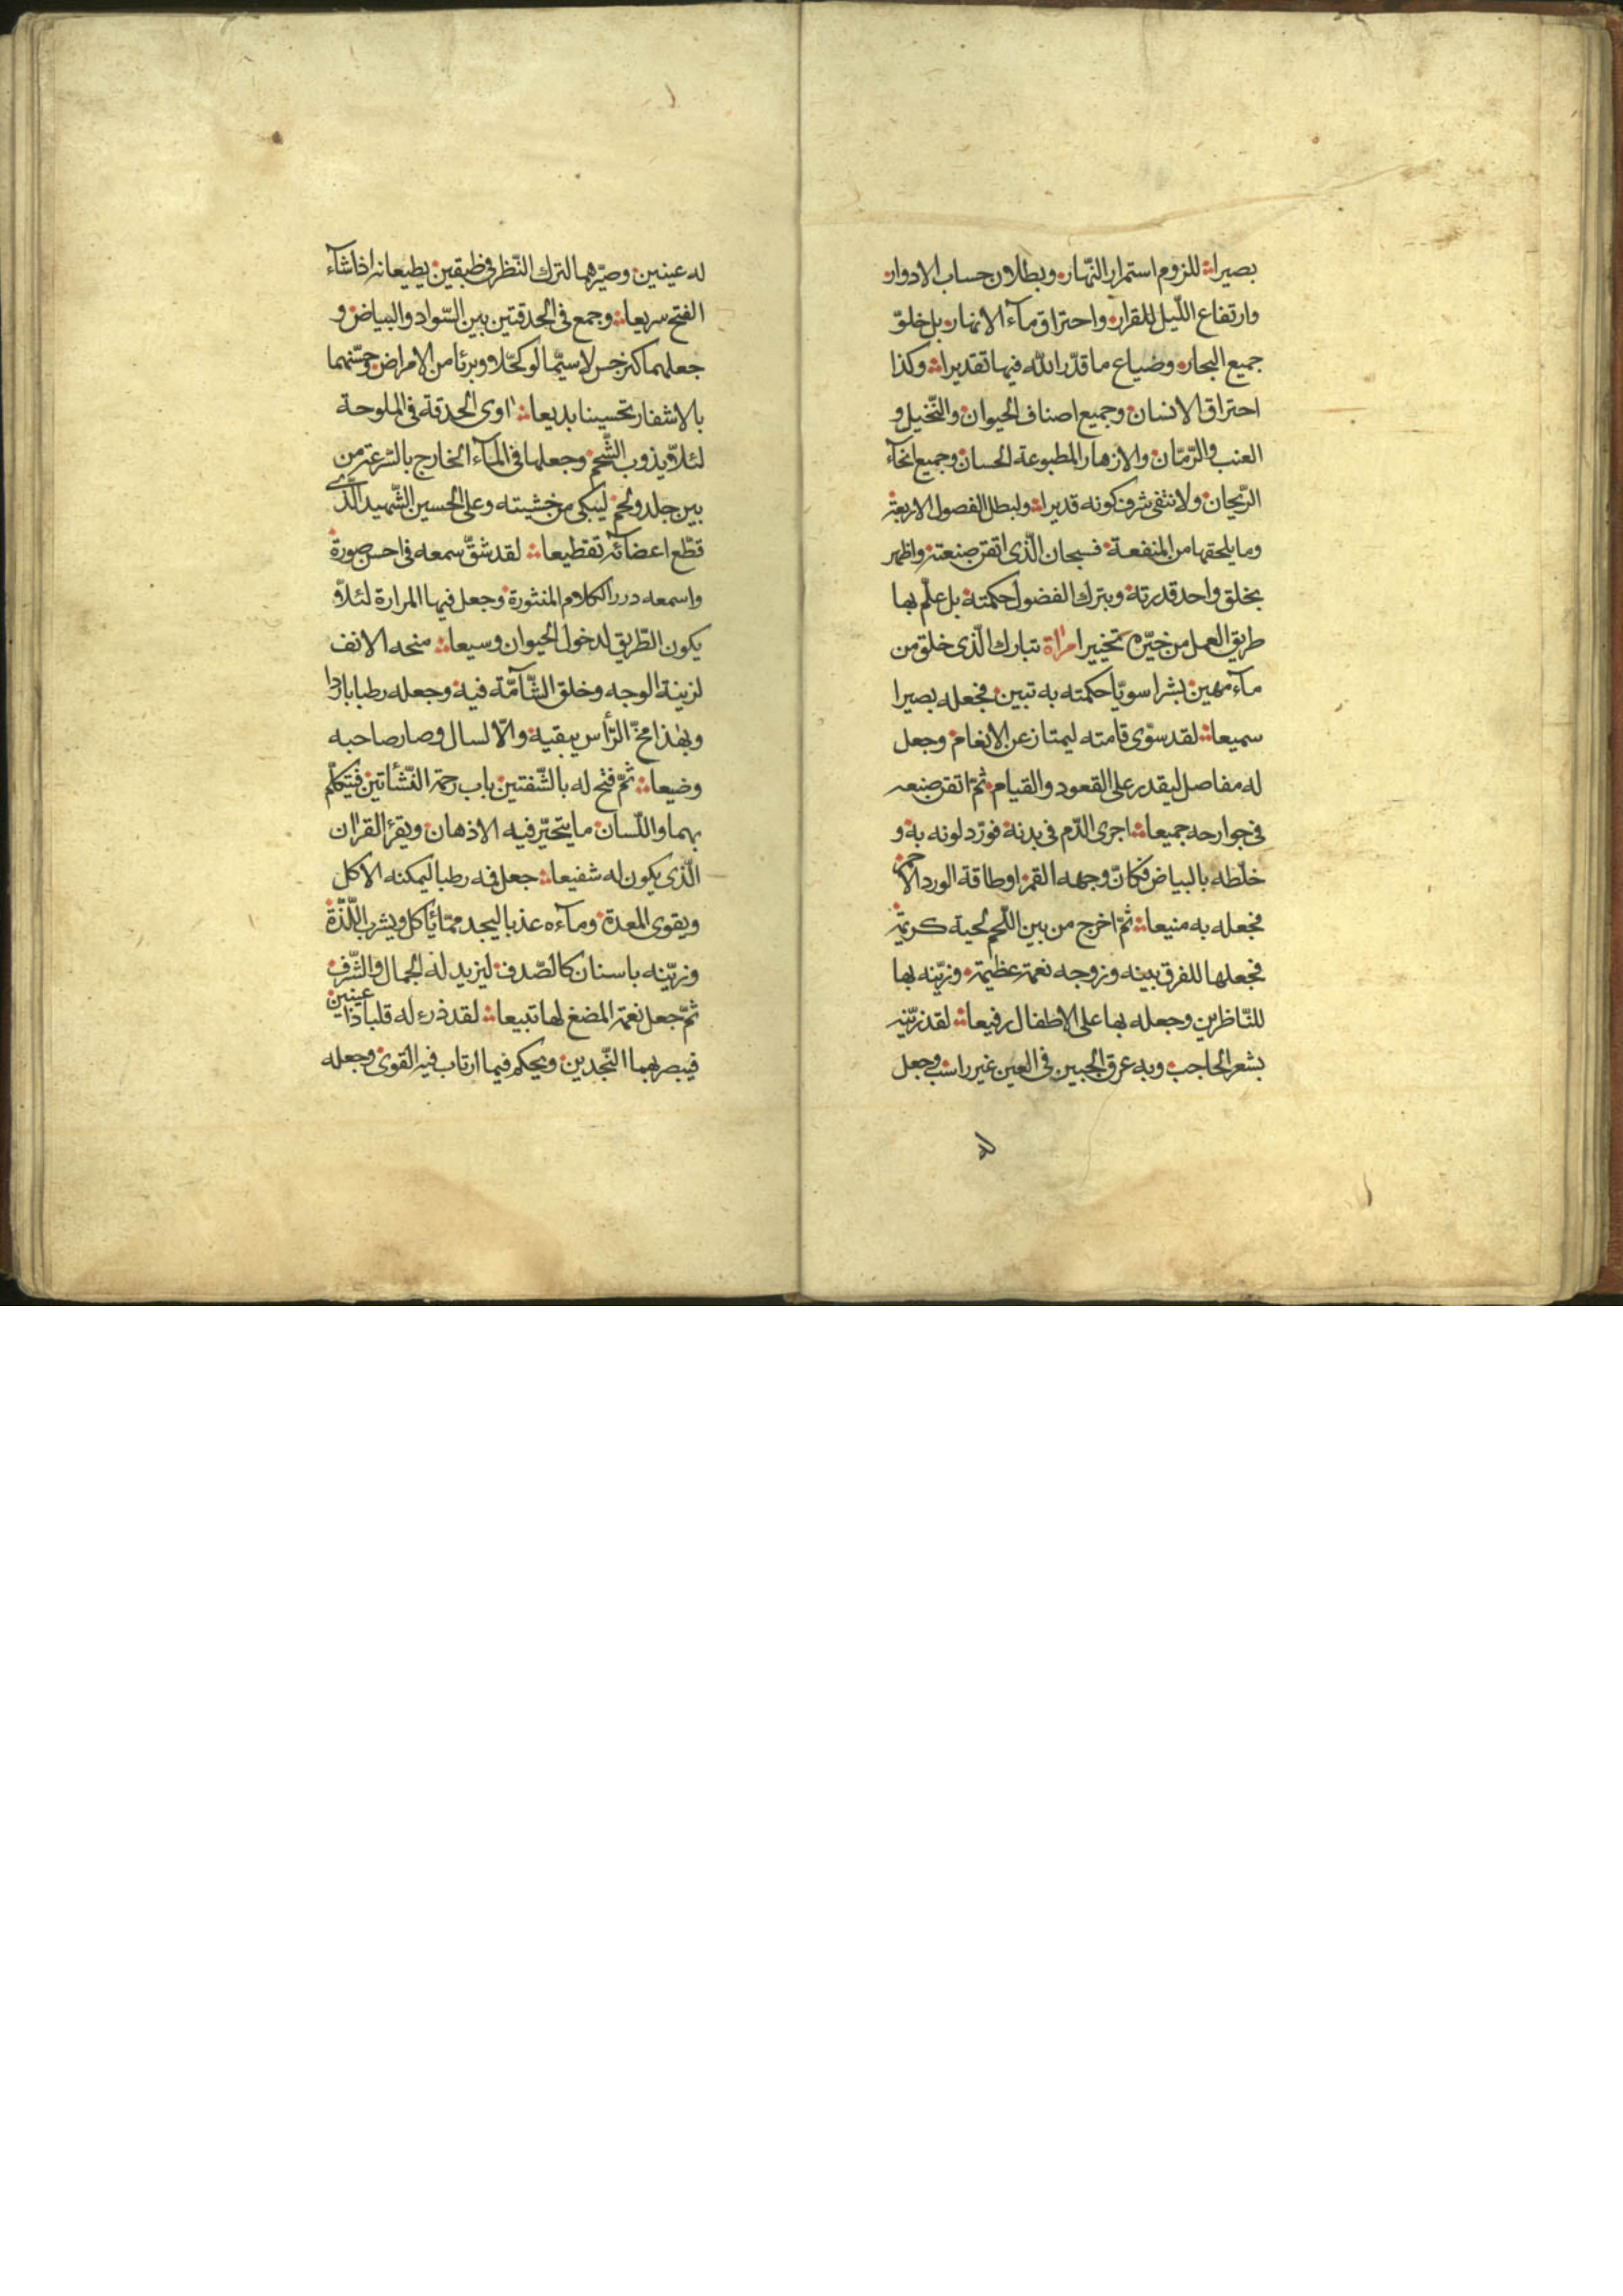 بصيرا للزوم استمرار النّهار وبطلان حساب الادوار
وارتفاع اللّيل للقرار واحتراق مآء الانهار بل خلوّ
جميع البحار وضياع ما قدّر الله فيها تقديرا وكذا
احتراق الانسان وجميع اصناف الحيوان والنّخيل و
العنب والرّمّان والازهار المطبوعة الحسان وجميع انحآء
الرّيحان ولانتفى شرف كونه قديرا ولبطل الفصول الاربعة
وما يلحقها من المنفعة فسبحان الّذى اتقن صنعته واظهر
بخلق واحد قدرته وبترك الفضول حكمته بل علّم بها
طريق العمل من خيّره تخييرا امرأة تبارك الّذى خلق من
مآء مهين بشرا سويّا حكمته به تبين فجعله بصيرا
سميعا لقد سوّى قامته ليمتاز عن الانعام وجعل
له مفاصل ليقدر على القعود والقيام ثمّ اتقن صنعه
فى جوارحه جميعا اجرى الدّم فى بدنه فورّد لونه به و
خلّطه بالبياض فكانّ وجهه القمر او طاقة الورد الاحمر
فجعله به منيعا ثمّ اخرج من بين اللّحم لحية كريمة
فجعلها للفرق بينه وزوجه نعمة عظيمة وزيّنه بها
للنّاظرين وجعله بها على الاطفال رفيعا لقد زيّنه
بشعر الحاجب وبه عرق الجبين فى العين غير راسب وجعل
له عينين وصيّرهما لترك النّظر فى طبقين يطيعانه اذا شآء
الفتح سريعا وجمع فى الحدقتين بين السّواد والبياض و
جعلهما كنرجس لا سيّما لو كحّلا وبرئا من الامراض وحسّنهما
بالاشفار تحسينا بديعا اوى الحدقة فى الملوحة
لئلّا يذوب الشّحم وجعلها فى المآء الخارج بالسّرعة من
بين جلد ولحم ليبكى من خشيته وعلى الحسين الشّهيد الّذى
قطّع اعضائه تقطيعا لقد شقّ سمعه فى احسن صورة
واسمعه درر الكلام المنثورة وجعل فيها المرارة لئلّا
يكون الطّريق لدخول الحيوان وسيعا منحه الانف
لزينة الوجه وخلق الشّآمّة فيه وجعله رطبا باردا
وبهذا مخّ الرّأس يبقيه والّا لسال وصار صاحبه
وضيعا ثمّ فتح له بالشّفتين باب رحمة النّشأتين فيتكلّم
بهما واللّسان ما يتحيّر فيه الاذهان ويقرء القرآن
الّذى يكون له شفيعا جعل فيه رطبا ليمكنه الاكل
ويقوى المعدة ومآءه عذبا ليجد ممّا يأكل ويشرب اللّذّة
وزيّنه باسنان كالصّدف ليزيد له الجمال والشّرف
ثمّ جعل نعمة المضغ لها تبيعا لقد ذرء له قلبا ذا عينين
فيبصر بهما النّجدين ويحكم فيما ارتاب فيه القوى وجعله